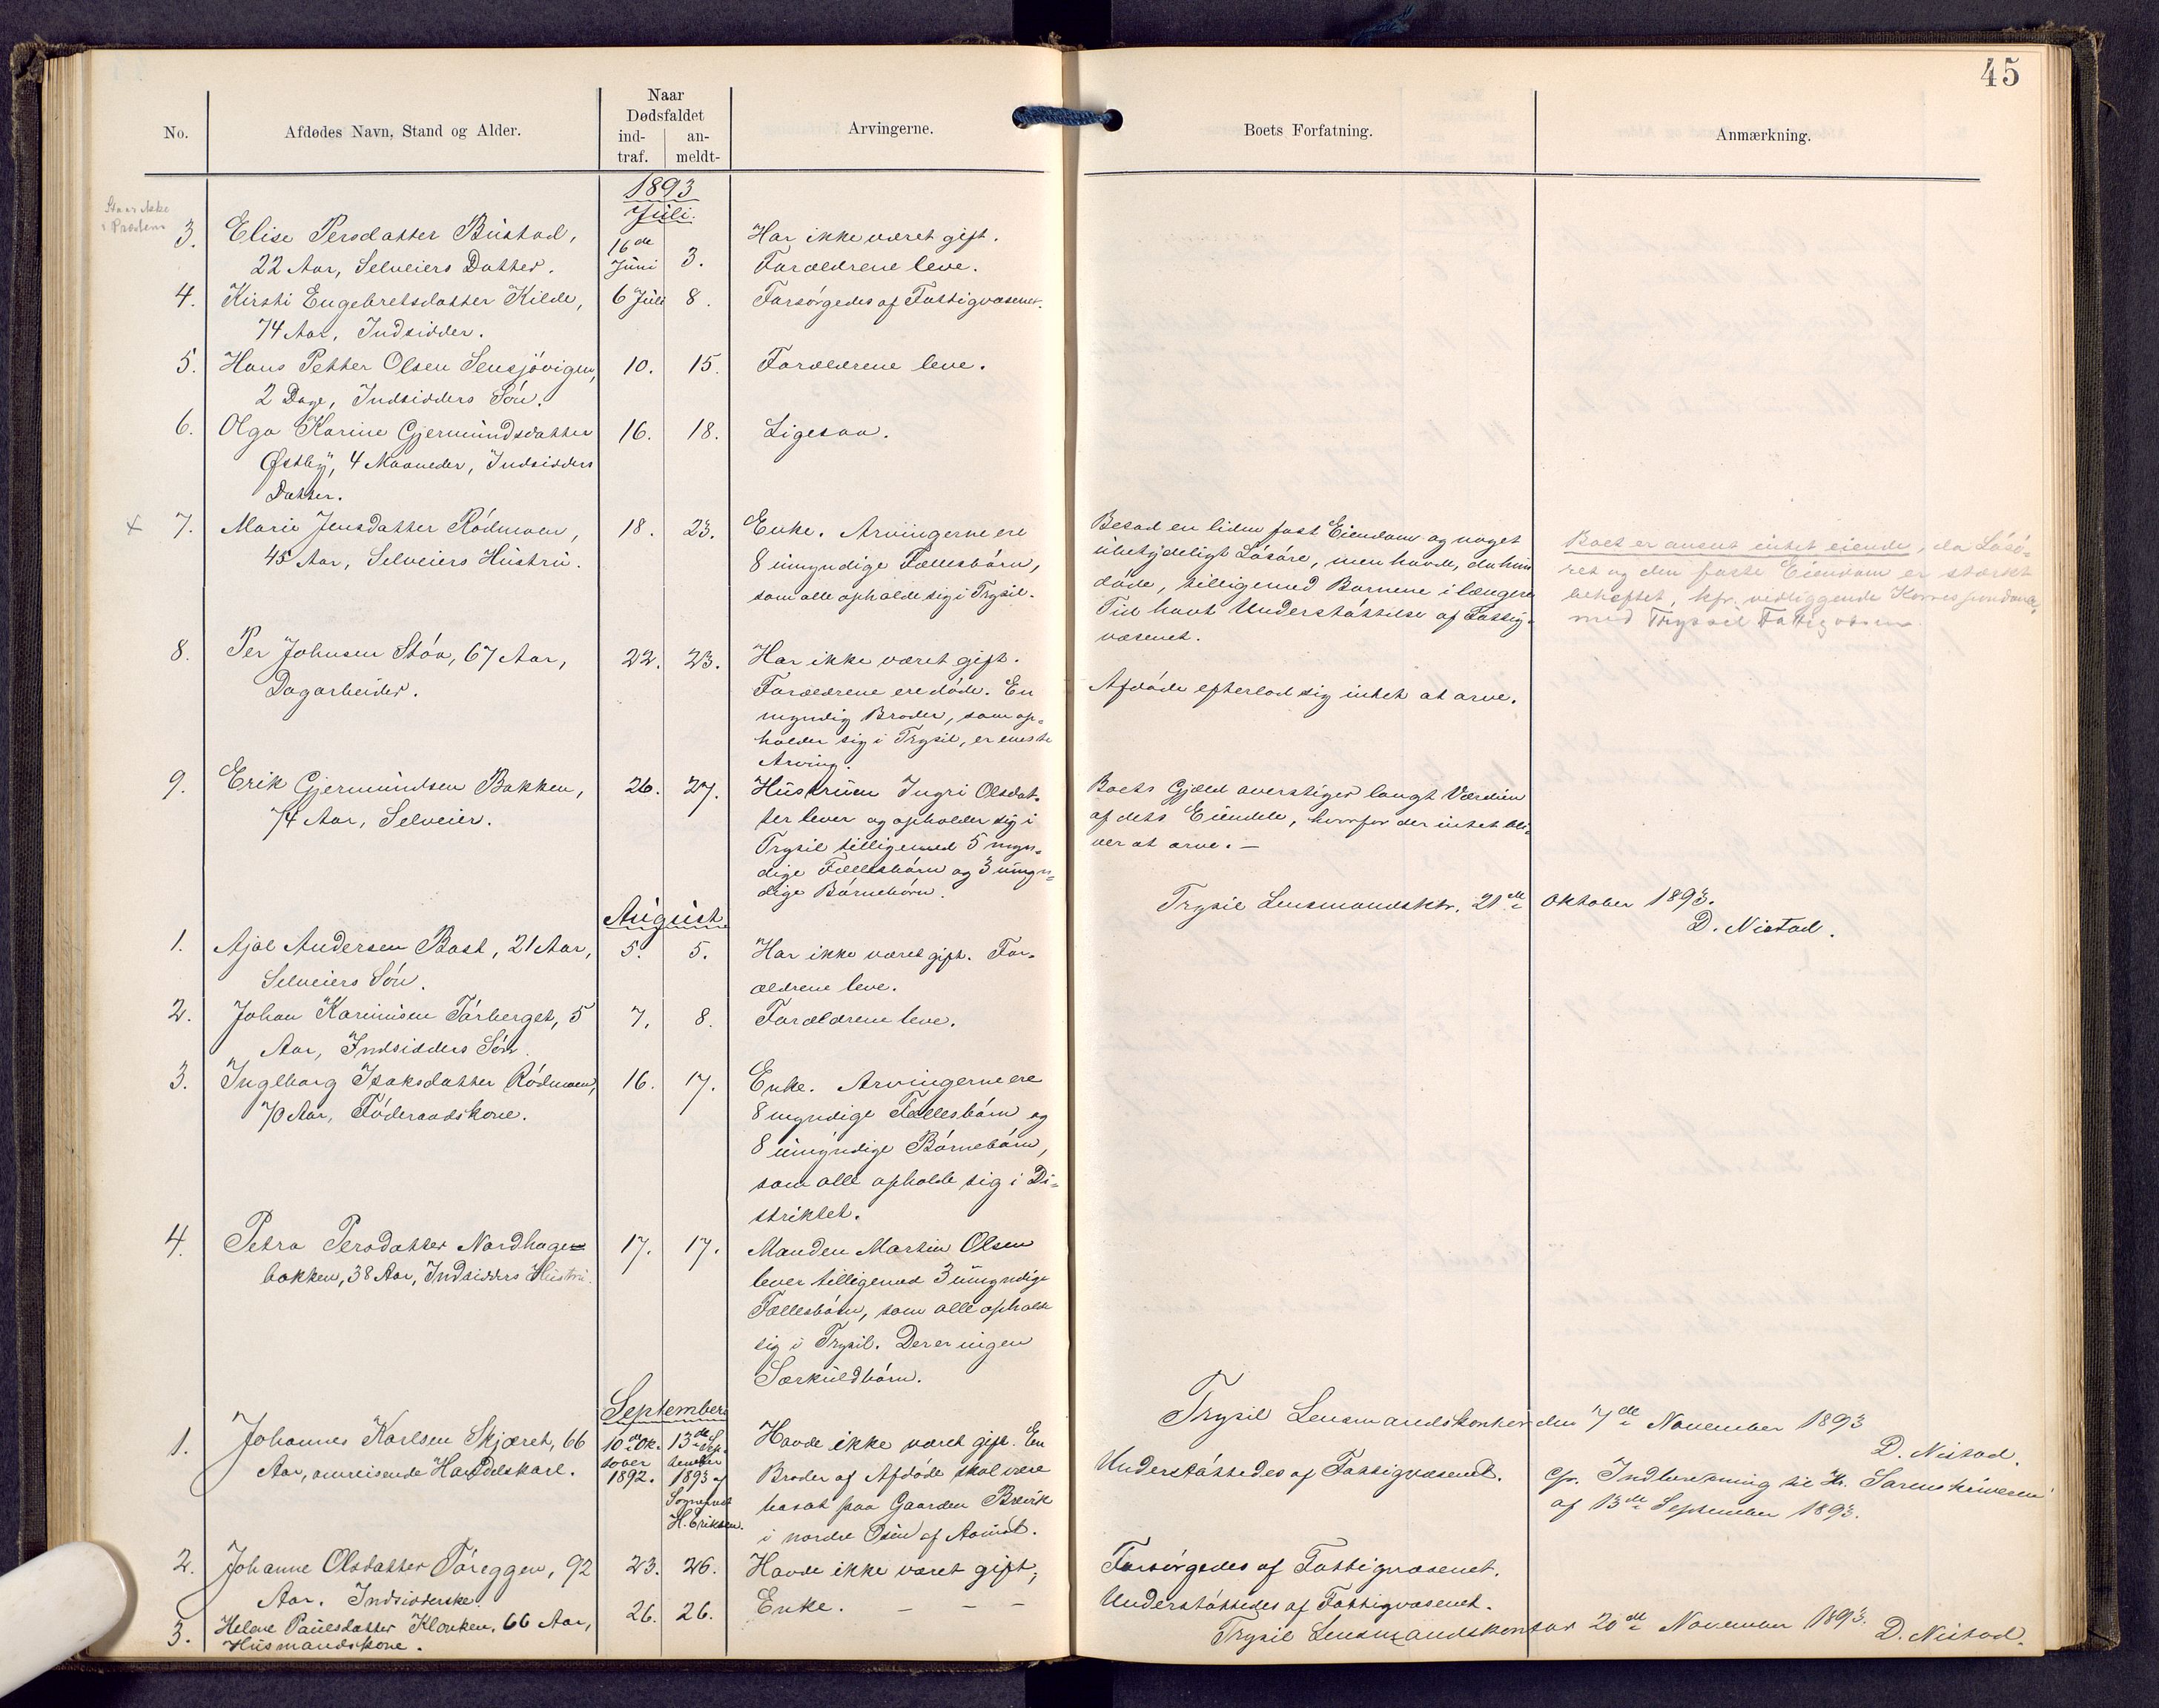 45
No.
Afdødes Navn, Stand og Alder.
Naar
Dødsfaldet
ind-
traf.
an-
meldt-
Arvingerne.
Boets Forfatning.
Anmærkning.
1893
Juli.
Staar ikke
3. Elise Persdatter Bustad,
22 Aar, Selveiers Datter.
16de
Juni
3.
Har ikke været gift.
Forældrene leve.
4. Kirsti Engebretsdatter Kilde,
74 Aar, Indsidder.
6 Juli
8.
Forsørgedes af Fattigvæsenet.
5. Hans Petter Olsen Sensjøvigen,
2 Dage, Indsidders Søn.
10.
15.
Forældrene leve.
6. Olga Karine Gjermundsdatter
Østby, 4 Maaneder, Indsidders
Datter.
16.
18.
Ligesaa.
x 7. Marie Jensdatter Rødmoen,
45 Aar, Selveiers Hustru.
18.
23.
Enke. Arvingerne ere
8 umyndige Fællesbørn,
som alle opholde sig i Trysil.
Besad en liden fast Eiendom og noget
ubetydeligt Løsøre, men havde, da hun
døde, tilligemed Børnene i længere
Tid havt Understøttelse af Fattig-
væsenet.
Boet er anseet intet eiende, da Løsø-
ret og den faste Eiendom er stærkt
behæftet, kfr. vedliggende Korrespondance
med Trysil Fattigvæsen
8. Per Johnsen Støa, 67 Aar,
Dagarbeider.
22.
23.
Har ikke været gift.
Forældrene ere døde. En
myndig Broder, som op-
holder sig i Trysil, er eneste
Arving.
Afdøde efterlod sig intet at arve.
9. Erik Gjermundsen Bakken,
74 Aar, Selveier.
26.
27.
Hustruen Ingri Olsdat-
ter lever og opholder sig i
Trysil tilligemed 5 myn-
dige Fællesbørn og 3 umyn-
dige Børnebørn.
Boets Gjæld overstiger langt Værdien
af dets Eiendele, hvorfor der intet bli-
ver at arve. —
Trysil Lensmandsktr. 21de Oktober 1893.
D. Nistad.
August
1. Ajal Andersen Bast, 21 Aar,
Selveiers Søn.
5.
5.
Har ikke været gift. For-
ældrene leve.
2. Johan Karinusen Tørberget, 5
Aar, Indsidders Søn.
7.
8.
Forældrene leve.
3. Ingeborg Isaksdatter Rødmoen,
70 Aar, Føderaadskone.
16.
17.
Enke. Arvingerne ere
8 myndige Fællesbørn og
8 umyndige Børnebørn,
som alle opholde sig i Di-
striktet.
4. Petra Persdatter Nordhagen
bakken, 38 Aar, Indsidders Hustru.
17.
17.
Manden Martin Olsen
lever tilligemed 3 umyndige
Fællesbørn, som alle opholde
sig i Trysil. Der er ingen
Særkuldbørn.
Trysil Lensmandskontor den 7de November 1893
D. Nistad.
September
1. Johannes Karlsen Skjæret, 66
Aar, omreisende Handelskarl.
10de Ok-
tober
1892.
13de Sep-
tember
1893 af
Sogneprest
H. Eriksen.
Havde ikke været gift. En
Broder af Afdøde skal være
bosat paa Gaarden Brevik
i nordre Osen af Aamot.
Understøttedes af Fattigvæsenet.
cfr. Indberetning til Hr. Sorenskriveren
af 13de September 1893.
2. Johanne Olsdatter Tøreggen, 92
Aar. Indsidderske.
23.
26.
Havde ikke været gift;
Forsørgedes af Fattigvæsenet.
3. Helene Paulsdatter Klanken, 66 Aar,
Husmandskone.
26.
26.
Enke. — — —
Understøttedes af Fattigvæsenet.
Trysil Lensmandskontor 20de November 1893.
D. Nistad.